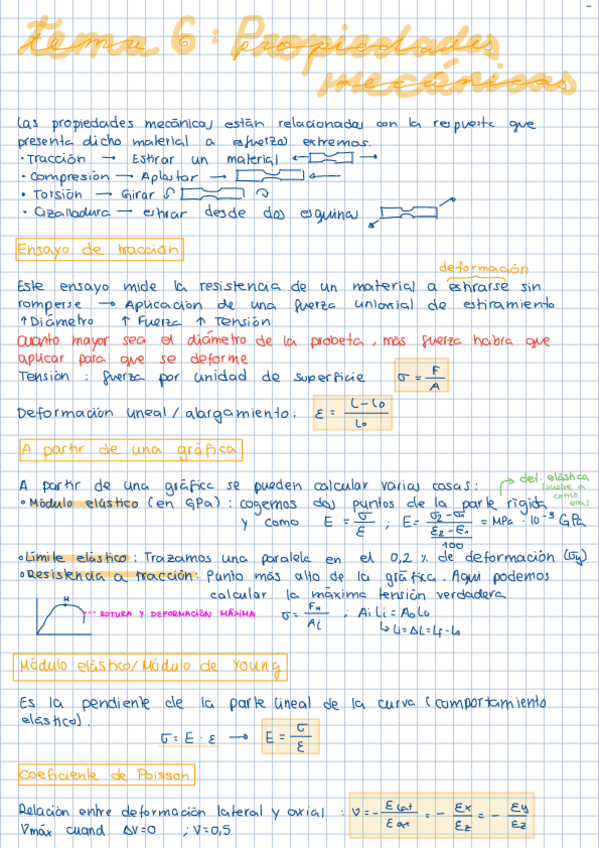 tema 6: Propiedades
mecánicas
Las propiedades mecánicas están relacionadas con la respuesta que
presenta dicho material a esfuerzos extremos.
· Tracción → Estirar un material
· Compresión → Aplastar
· Torsión → Girar
· Cizalladura → estirar desde dos esquinas
Ensayo de tracción
deformación
Este ensayo mide la resistencia de un material a estirarse sin
romperse → Aplicación de una fuerza uniaxial de estiramiento
↑ Diámetro ↑ Fuerza ↑ Tensión
Cuanto mayor sea el diámetro de la probeta, más fuerza habrá que
aplicar para que se deforme
Tensión : fuerza por unidad de superficie σ = F/A
Deformación lineal / alargamiento: ε = (L-L0)/L0
A partir de una gráfica
A partir de una gráfica se pueden calcular varias cosas:
→ def. elástica
(vuelve a
como
era)
• Módulo elástico (en GPa) : cogemos dos puntos de la parte rígida
y como E = σ/ε ; E = (σ2-σ1)/((ε2-ε1)/100) = MPa · 10⁻³ GPa
• Límite elástico : Trazamos una paralela en el 0,2 % de deformación (σy)
• Resistencia a tracción: Punto más alto de la gráfica. Aquí podemos
calcular la máxima tensión verdadera
M
ROTURA Y DEFORMACIÓN MÁXIMA
σ = FM/Ai ; Ai Li = A0 L0
↳ Li = ΔL = Lf - L0
Módulo elástico/Módulo de Young
Es la pendiente de la parte lineal de la curva (comportamiento
elástico).
σ = E · ε → E = σ/ε
Coeficiente de Poisson
Relación entre deformación lateral y axial : ν = - εlat/εax = - εx/εz = - εy/εz
νmáx cuand ΔV=0 ; ν=0,5